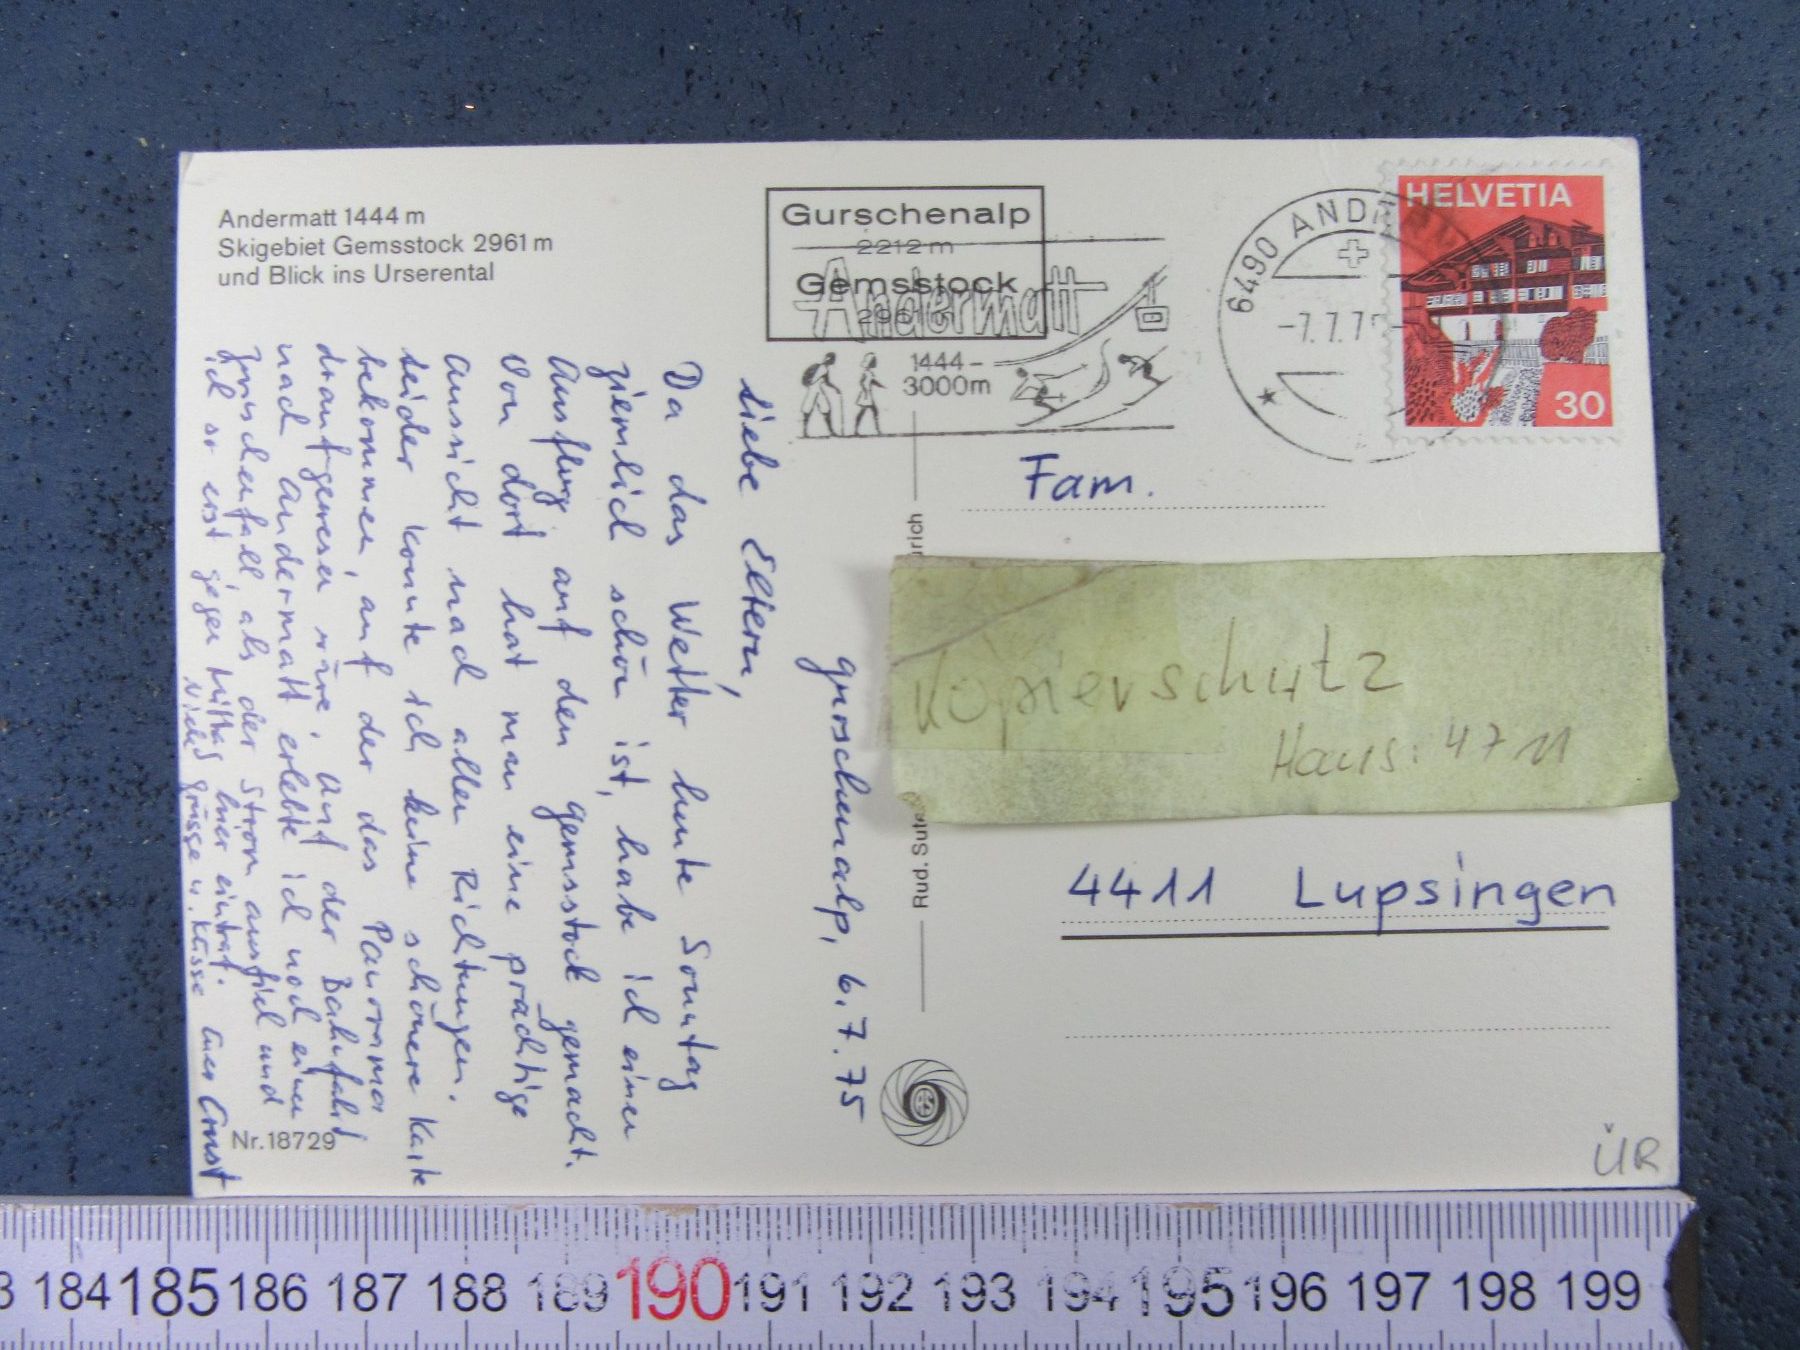 Andermatt 1444 m
Skigebiet Gemsstock 2961 m
und Blick ins Urserental
Gurschenalp
2212 m
Gemsstock
2961 m
Andermatt
1444-
3000m
6490 AND
-7.7.75
HELVETIA
30
Gurschenalp, 6.7.75
Liebe Eltern,
Da das Wetter heute Sonntag
ziemlich schön ist, habe ich einen
Ausflug auf den Gemsstock gemacht.
Von dort hat man eine prächtige
Aussicht nach allen Richtungen.
Leider konnte ich keine schönere Karte
bekommen, auf der das Panorama
drauf gewesen wäre. Auf der Bahnfahrt
nach Andermatt erlebte ich noch einen
Zwischenfall, als der Strom ausfiel und
ich so erst gegen Mittag hier eintraf.
Viele Grüsse u. Küsse Euer Ernst
Nr. 18729
Fam.
Kopierschutz
Haus: 4711
4411 Lupsingen
Rud. Sute
rich
ÜR
184 185 186 187 188 189 190 191 192 193 194 195 196 197 198 199